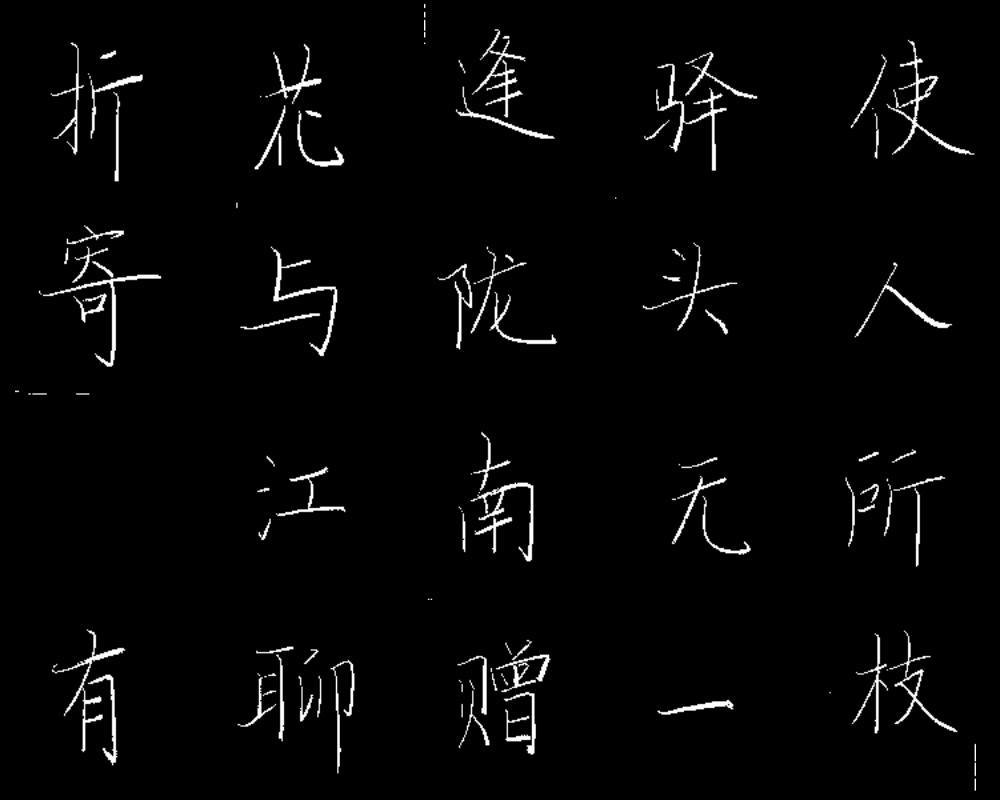 折花逢驿使
寄与陇头人
江南无所
有聊赠一枝